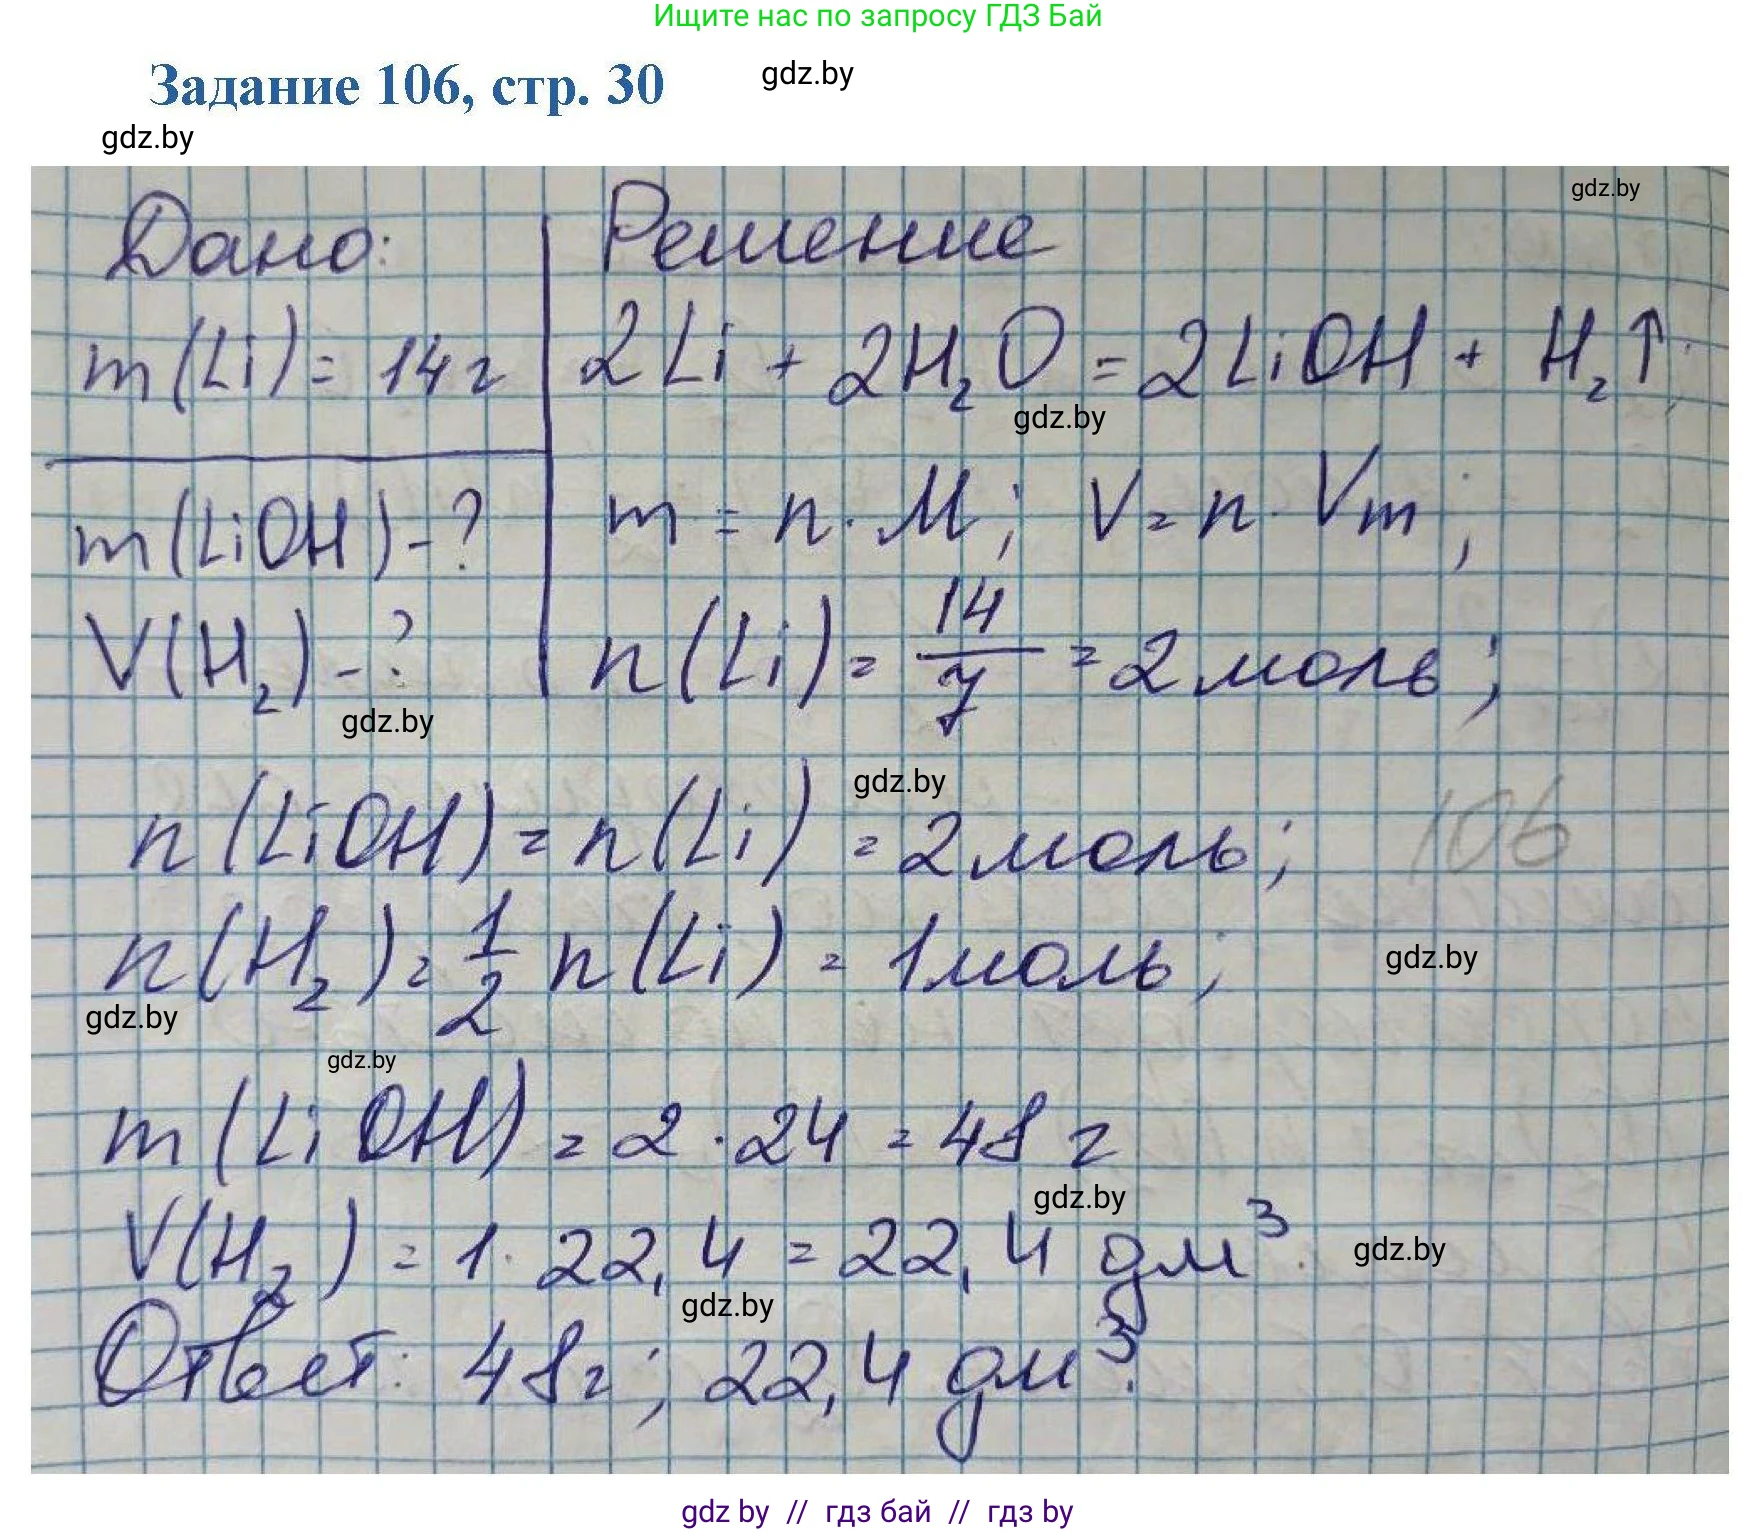 Ищите нас по запросу ГДЗ Бай
Задание 106, стр. 30
gdz.by
gdz.by
gdz.by
Дано:
Решение
m(Li) = 14 г
2Li + 2H₂O = 2LiOH + H₂↑;
gdz.by
m(LiOH) - ?
m = n · M; V = n · Vm;
V(H₂) - ?
n(Li) = 14/7 = 2 моль;
gdz.by
gdz.by
n(LiOH) = n(Li) = 2 моль;
106
n(H₂) = 1/2 n(Li) = 1 моль;
gdz.by
gdz.by
gdz.by
m(LiOH) = 2 · 24 = 48 г
gdz.by
V(H₂) = 1 · 22,4 = 22,4 дм³.
gdz.by
gdz.by
Ответ: 48 г; 22,4 дм³.
gdz by // гдз бай // гдз by